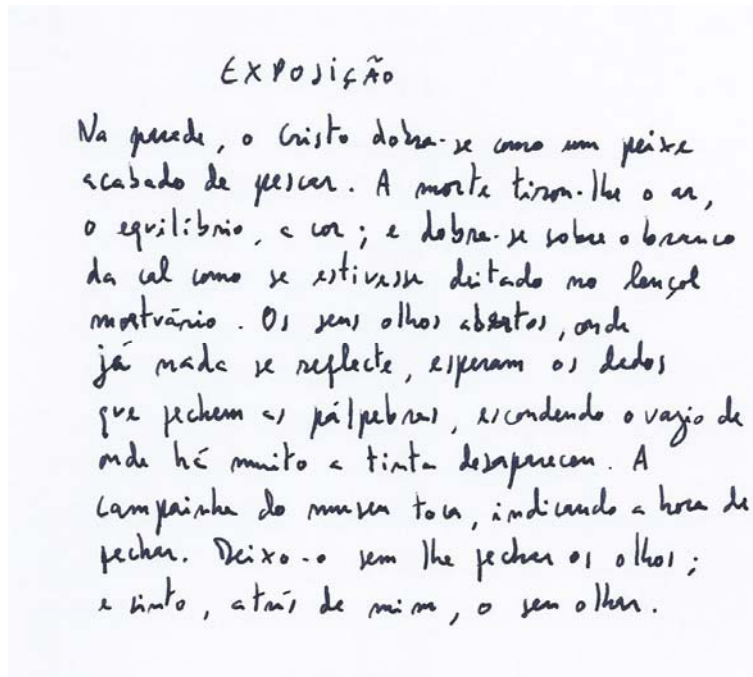 EXPOSIÇÃO
Na parede, o Cristo dobra-se como um peixe
acabado de pescar. A morte tirou-lhe o ar,
o equilíbrio, a cor; e dobra-se sobre o branco
da cal como se estivesse deitado no lençol
mortuário. Os seus olhos abertos, onde
já nada se reflecte, esperam os dedos
que fechem as pálpebras, escondendo o vazio de
onde há muito a tinta desapareceu. A
campainha do museu toca, indicando a hora de
fechar. Deixo-o sem lhe fechar os olhos;
e sinto, atrás de mim, o seu olhar.